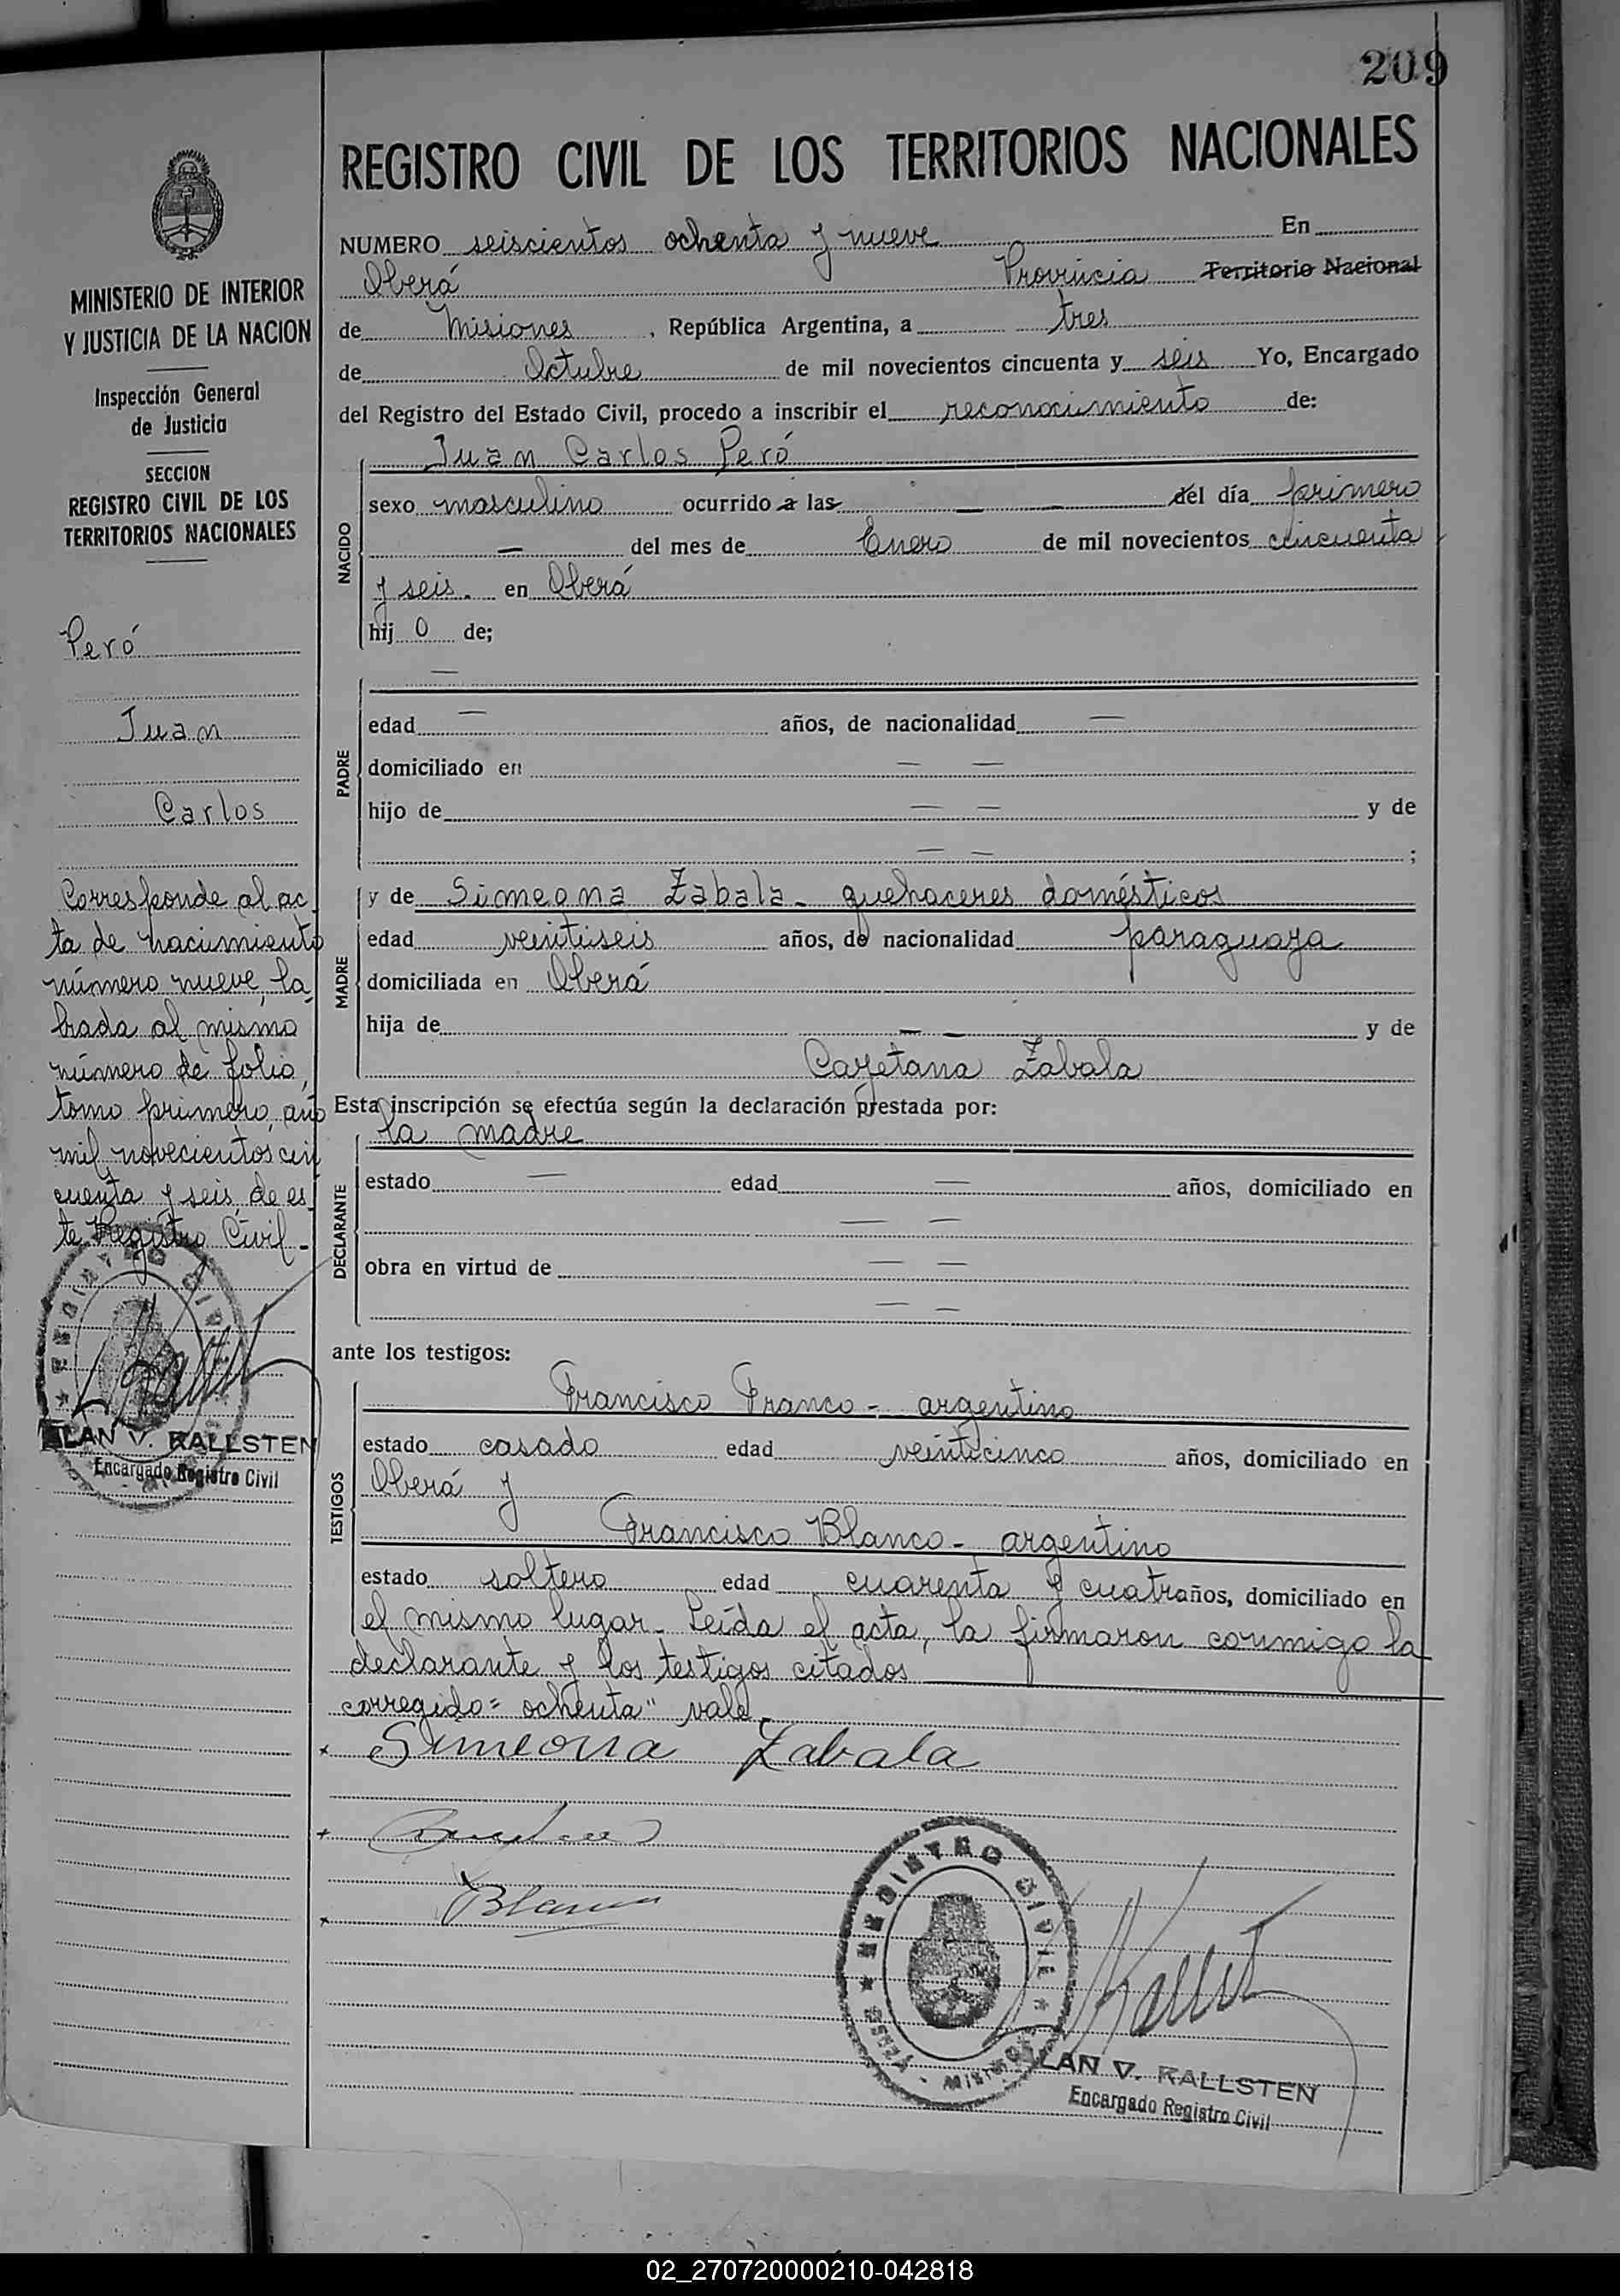 209
REGISTRO CIVIL DE LOS TERRITORIOS NACIONALES
NUMERO seiscientos ochenta y nueve En
Oberá Provincia Territorio Nacional
de Misiones, República Argentina, a tres
de Octubre de mil novecientos cincuenta y seis Yo, Encargado
del Registro del Estado Civil, procedo a inscribir el reconocimiento de:
NACIDO
Juan Carlos Peró
sexo masculino ocurrido a las — — del día primero
— del mes de Enero de mil novecientos cincuenta
y seis. en Oberá
hij o de;
PADRE
—
edad — años, de nacionalidad —
domiciliado en — —
hijo de — — y de
— — ;
MADRE
y de Simeona Zabala - quehaceres domésticos
edad veintiseis años, de nacionalidad paraguaya
domiciliada en Oberá
hija de — — y de
Cayetana Zabala
Esta inscripción se efectúa según la declaración prestada por:
DECLARANTE
la madre
estado — edad — años, domiciliado en
— —
obra en virtud de — —
— —
ante los testigos:
TESTIGOS
Francisco Franco - argentino
estado casado edad veinticinco años, domiciliado en
Oberá y
Francisco Blanco - argentino
estado soltero edad cuarenta y cuatro años, domiciliado en
el mismo lugar. Leída el acta, la firmaron conmigo la
declarante y los testigos citados
corregido = ochenta" vale.
Simeona Zabala
Blanco
REGISTRO CIVIL
MISIONES
ALAN V. RALLSTEN
Encargado Registro Civil
MINISTERIO DE INTERIOR
Y JUSTICIA DE LA NACION
Inspección General
de Justicia
SECCION
REGISTRO CIVIL DE LOS
TERRITORIOS NACIONALES
Peró
Juan
Carlos
Corresponde al ac
ta de nacimiento
número nueve, la
brada al mismo
número de folio,
tomo primero, año
mil novecientos cin
cuenta y seis de es
te Registro Civil.-
REGISTRO CIVIL
ALAN V. RALLSTEN
Encargado Registro Civil
02_270720000210-042818